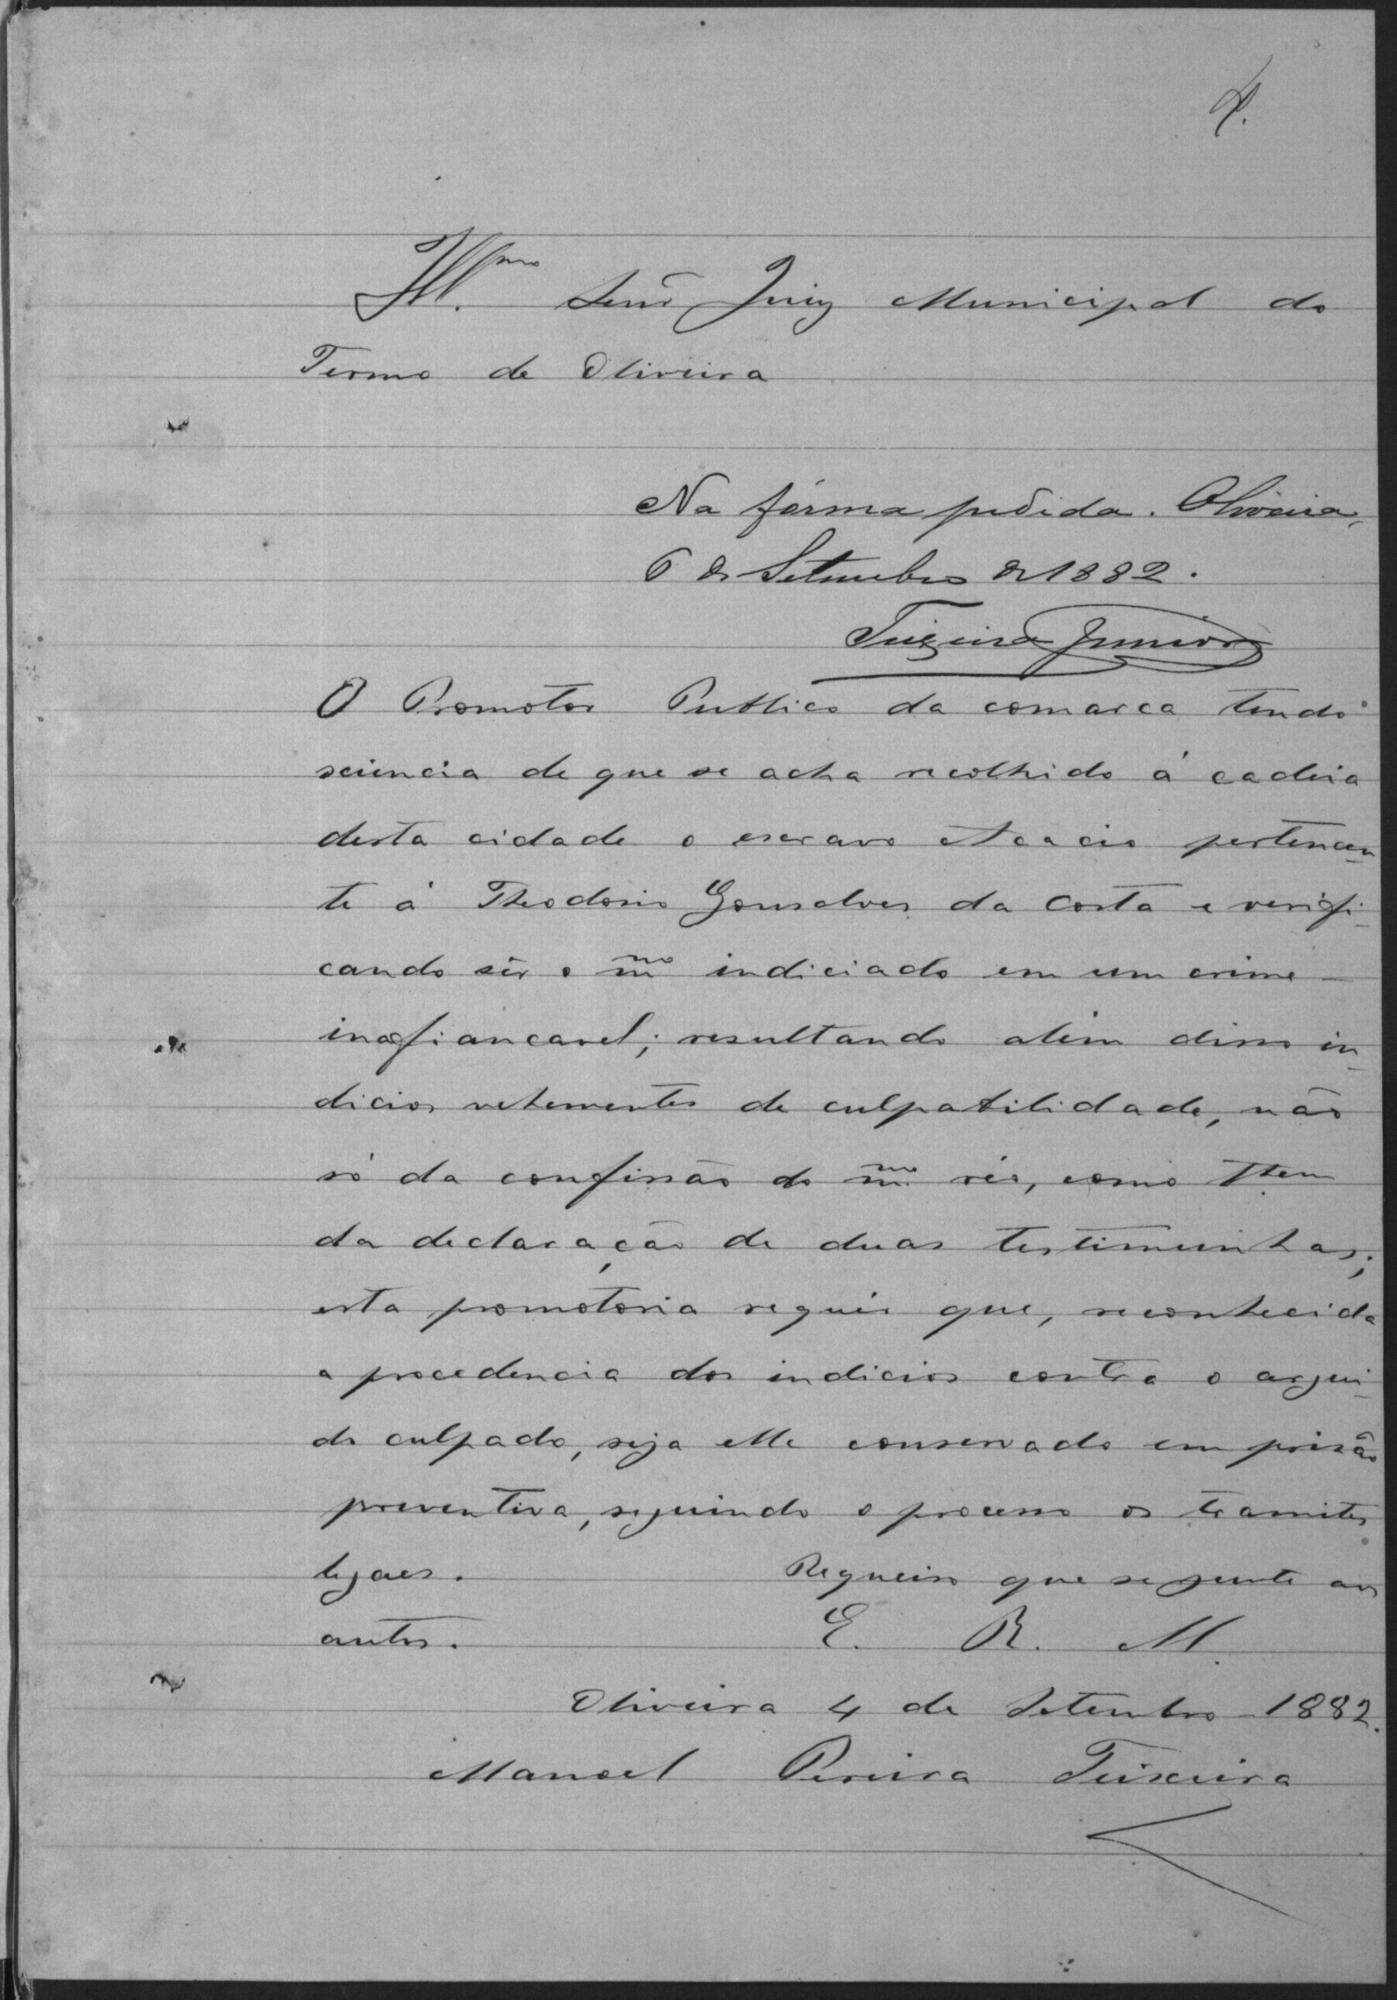 Ill.mo Senr Juiz Municipal do
Termo de Oliveira
Na fórma pedida. Oliveira,
6 de Setembro de 1882.
Teixeira Junior
O Promotor Publico da comarca tendo
sciencia de que se acha recolhido á cadeia
desta cidade o escravo Acacio pertencen-
te á Theodosio Gonsalves da Costa e verifi-
cando sêr o mmo indiciado em um crime
inafiancavel; resultando alêm disso in-
dicios vehementes de culpabilidade, não
só da confissão do mmo réo, como tbem
da declaração de duas testimunhas;
esta promotoria requér que, reconhecida
a procedencia dos indicios contra o argui-
do culpado, seja elle conservado em prisão
preventiva, seguindo o processo os tramites
legaes. Requeiro que se junte aos
autos. E. R. M.
Oliveira 4 de Setembro 1882.
Manoel Pereira Teixeira